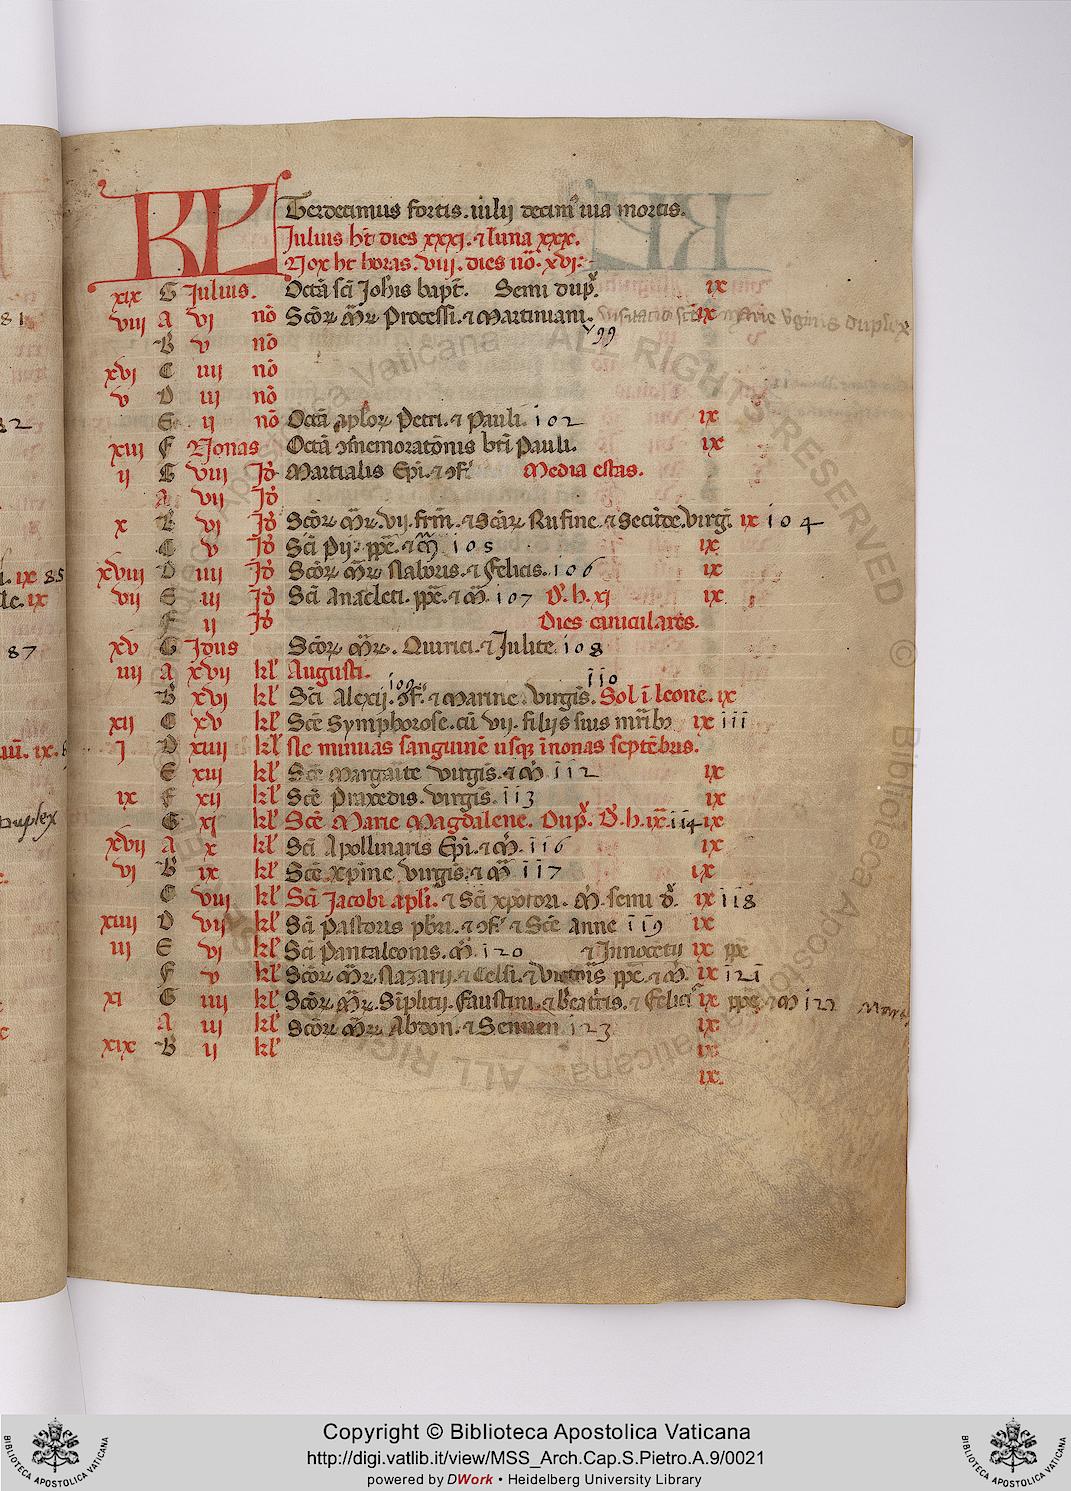 KL Terdecimus fortis. iulij decimꝰ uia mortis.
Julius ht dies xxxi. ⁊ luna xxx.
Nox ht horas. viii. dies uō. xvi.
xix G Julius. Octā sci Johis bapt. Semi dup. ix
viii A vi nō Scōꝝ mr̄ꝝ Processi. ⁊ Martiniani. visitatio sce marie vginis duplex ix
99
B v nō
xvi C iiii nō
v D iii nō
E ii nō Octā aplōꝝ Petri. ⁊ Pauli. 102 ix
xiii F Nonas Octā ꝯmemoratōnis bti Pauli. ix
ii G viii Id Martialis Epi. ⁊ ꝯf. Media estas.
A vii Id
x B vi Id Scōꝝ mr̄ꝝ. vii. frm̄. ⁊ Scāꝝ Rufine. ⁊ Secūde. virgi. ix 104
C v Id Sci Pij. ppe. ⁊ m̄ 105 ix
xviii D iiii Id Scōꝝ mr̄ꝝ Naboris. ⁊ Felicis. 106 ix
vii E iii Id Sci Anacleti. ppe. ⁊ m̄. 107 D. h. xi ix
F ii Id Dies caniculares.
xv G Idus Scōꝝ mr̄ꝝ. Quirici. ⁊ Julite. 108
iiii A xvii kl Augusti.
109 110
B xvi kl Sci Alexii. ꝯf. ⁊ Marine. virgis. Sol ī leone. ix
xii C xv kl Sce Symphorose. cū vii. filijs suis mrībꝰ ix 111
j D xiiii kl Ne minuas sanguinē usqꝫ ī nonas septēbris.
E xiii kl Sce Margarite virgis. ⁊ m̄. 112 ix
ix F xii kl Sce Praxedis. virgis. 113 ix
G xi kl Sce Marie Magdalene. Dup. D. h. ix. 114 ix
xvii A x kl Sci Apollinaris Epi. ⁊ m̄. 116 ix
vi B ix kl Sce xpine virgis. ⁊ m̄ 117 ix
C viii kl Sci Jacobi apli. ⁊ Sci xpofori. m̄. semi d. ix 118
xiiii D vii kl Sci Pastoris pbri. ⁊ ꝯf. ⁊ Sce Anne 119 ix
iii E vi kl Sci Pantaleonis. m̄. 120 ⁊ Innocetii ix ppe
F v kl Scōꝝ mr̄ꝝ. Nazarij. ⁊ Celsi. ⁊ Victoris ppe. ⁊ m̄. ix 121
xi G iiii kl Scōꝝ mr̄ꝝ. Simplicij. Faustini. ⁊ Beatricis. ⁊ Felicis ix ppe. ⁊ m̄ 122
A iii kl Scōꝝ mr̄ꝝ Abdon. ⁊ Sennen 123 ix
xix B ii kl ix
ix
81
82
ix 85
ix
87
duplex
Copyright © Biblioteca Apostolica Vaticana
http://digi.vatlib.it/view/MSS_Arch.Cap.S.Pietro.A.9/0021
powered by DWork • Heidelberg University Library
BIBLIOTECA APOSTOLICA VATICANA
BIBLIOTECA APOSTOLICA VATICANA